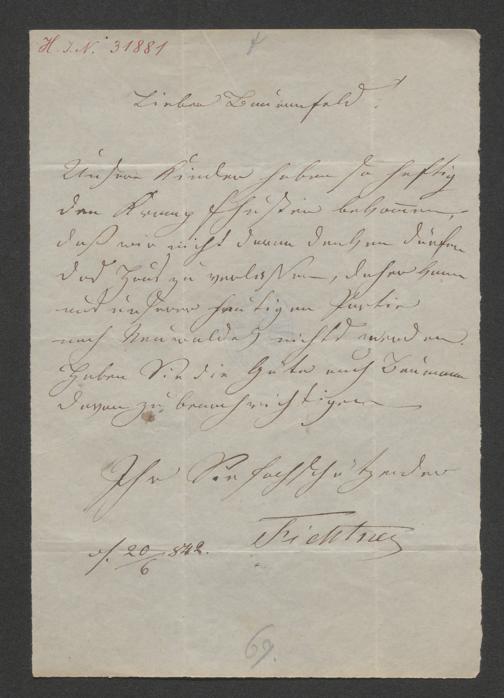 H. I. N. 31881
Lieber Bauernfeld!
Unsere Kinder haben so heftig
den Krampfhusten bekommen,
daß wir nicht daran denken dürfen
das Haus zu verlassen, daher kann
aus unserer heutigen Partie
nach Neuwaldegg nichts werden.
Haben Sie die Güte auch Baumann
davon zu benachrichtigen
Ihr Sie hochschätzender
Fichtner
20/6 842.
69.